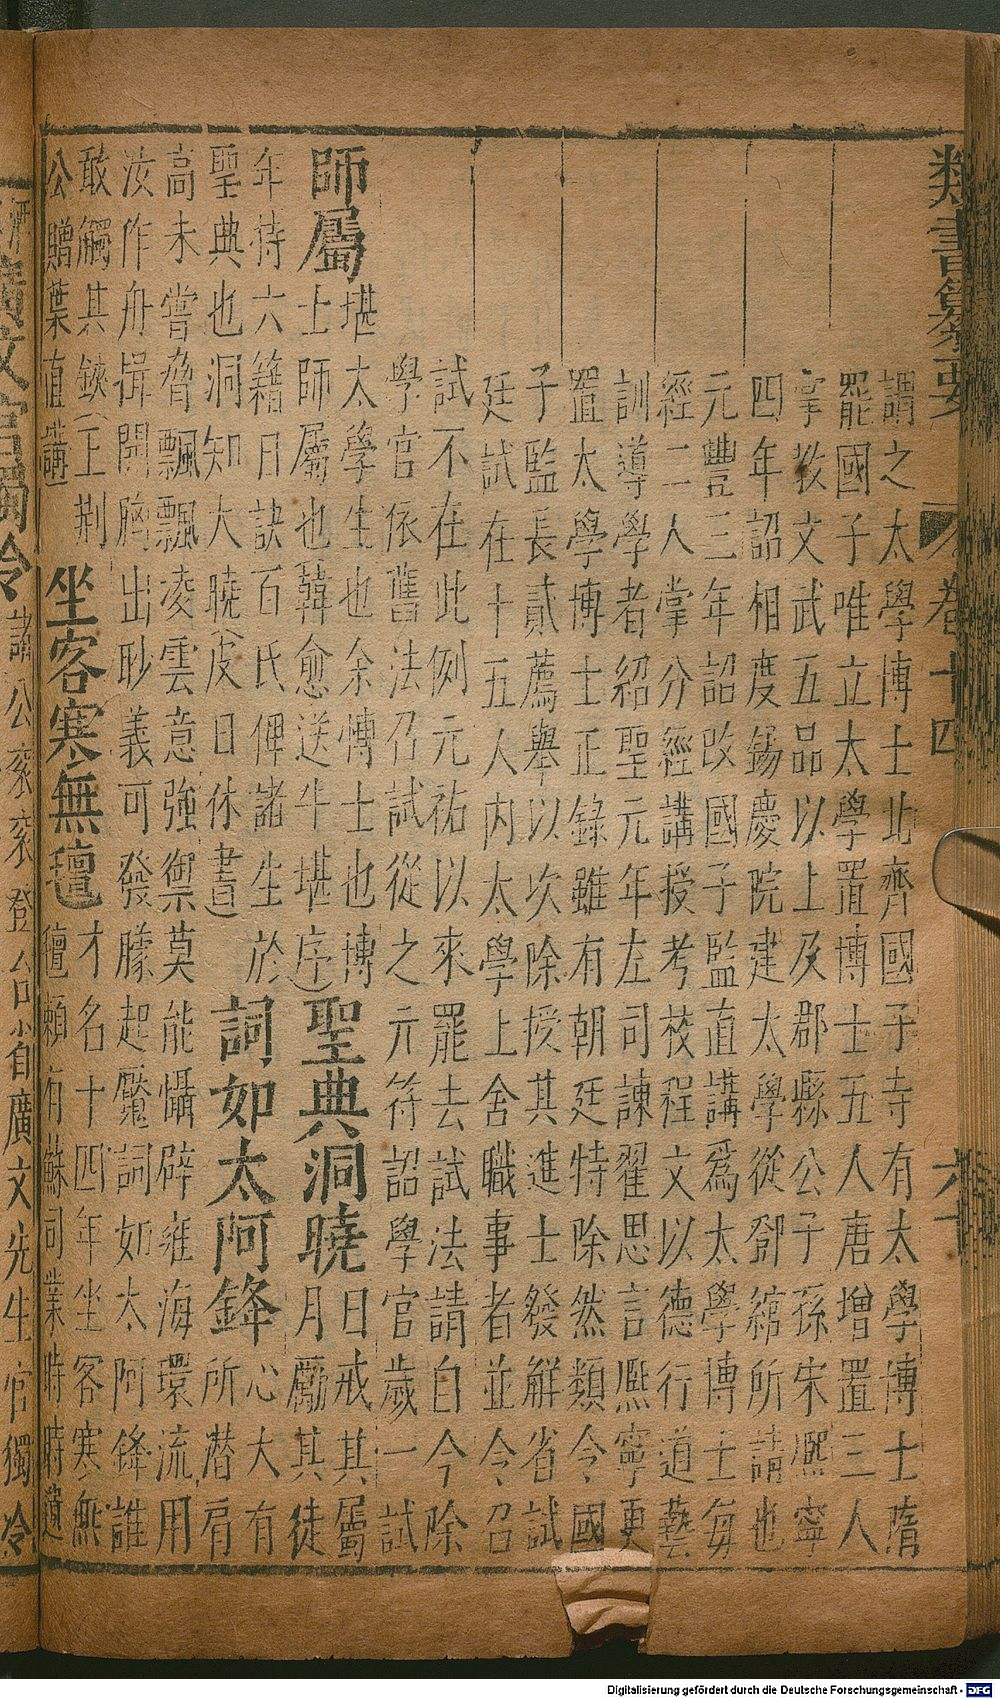 類書纂要 卷十四 六十
謂之太學博士北齊國子寺有太學博士隋
罷國子唯立太學置博士五人唐增置三人
掌教文武五品以上及郡縣公子孫宋熈寧
四年詔相度錫慶院建太學從鄧綰所請也
元豐三年詔改國子監直講爲太學博士每
經二人掌分經講授考校程文以德行道藝
訓導學者紹聖元年左司諫翟思言熈寧更
置太學博士正錄雖有朝廷特除然類令國
子監長貳薦舉以次除授其進士發解省試
廷試在十五人內太學上舍職事者並令召
試不在此例元祐以來罷去試法請自今除
學官依舊法召試從之元符詔學官歲一試
師屬
堪太學生也余博士也博
士師屬也韓愈送牛堪序
聖典洞曉
日戒其屬
月勵其徒
年持六籍日訣百氏俾諸生於
聖典也洞知大曉皮日休書
詞如太阿鋒
心大有
所潜肩
高未嘗脅飄飄凌雲意強禦莫能懾辟雍海環流用
汝作舟揖閉胸出眇義可發朦起魘詞如太阿鋒誰
敢觸其鋏
公贈葉直講
坐客寒無氊
才名十四年坐客寒無
氊賴有蘇司業時時
廣文官獨冷
諸公衮衮登台省廣文先生官獨冷
Digitalisierung gefördert durch die Deutsche Forschungsgemeinschaft - DFG